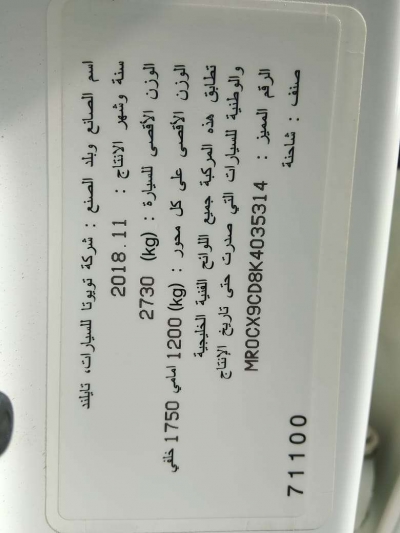 اسم الصانع وبلد الصنع : شركة تويوتا للسيارات، تايلند
سنة وشهر الانتاج : 2018.11
الوزن الأقصى للسيارة : (kg) 2730
الوزن الأقصى على كل محور : (kg) 1200 امامي 1750 خلفي
تطابق هذه المركبة جميع اللوائح الفنية الخليجية
والوطنية للسيارات التي صدرت حتى تاريخ الإنتاج
الرقم المميز : MR0CX9CD8K4035314
صنف : شاحنة
71100